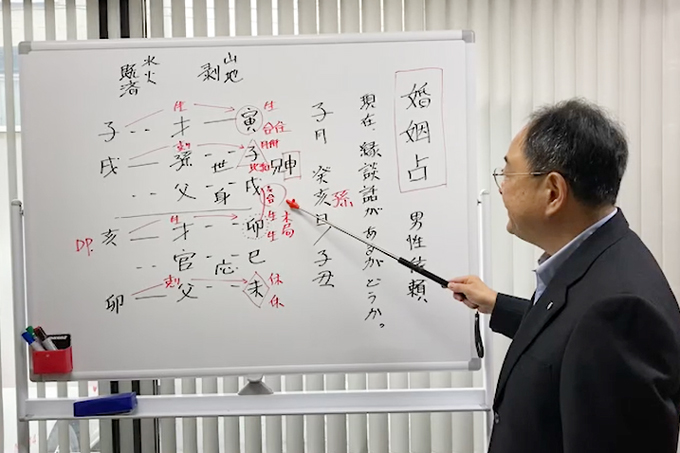 婚姻占 男性依頼
現在、縁談話があるがどうか。
子月 癸亥日/子丑
孫
山地
剥
水火
既済
子 才 寅 生 合住
戌 孫 世 子 月併 兄申
父 身 戌 合
亥 才 卯 生 木局
官 応 巳
卯 父 未 休
生
生
DP.